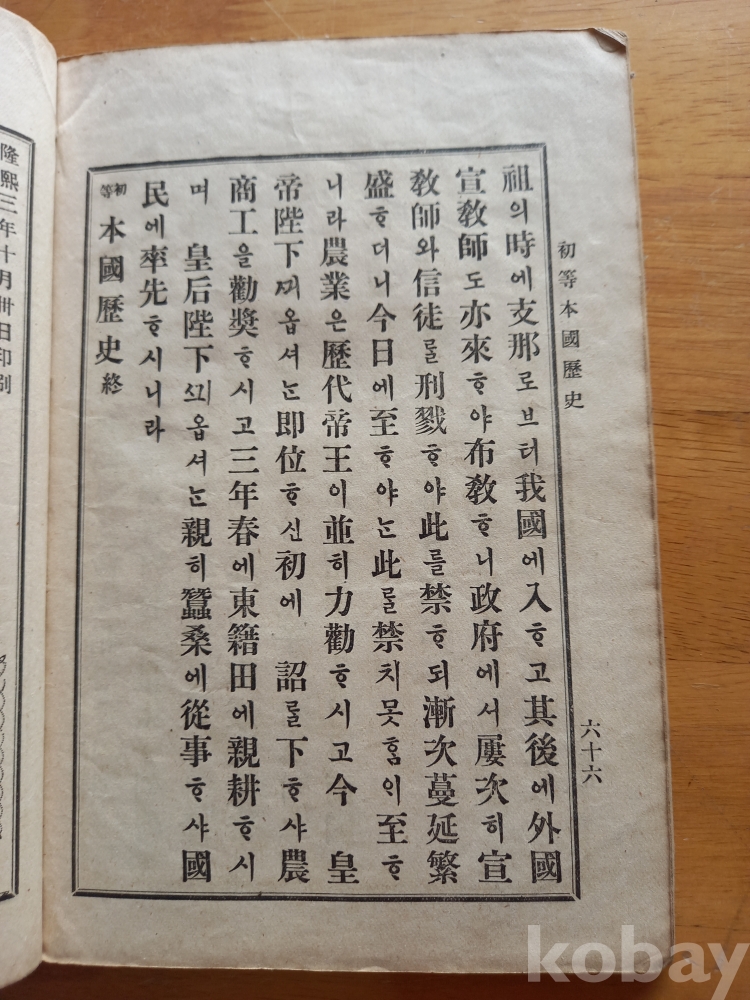 初等本國歷史
六十六
祖의時에支那로브터我國에入ᄒᆞ고其後에外國
宣敎師도亦來ᄒᆞ야布敎ᄒᆞ니政府에서屢次히宣
敎師와信徒ᄅᆞᆯ刑戮ᄒᆞ야此를禁ᄒᆞ되漸次蔓延繁
盛ᄒᆞ더니今日에至ᄒᆞ야ᄂᆞᆫ此ᄅᆞᆯ禁치못ᄒᆞᆷᄋᆡ至ᄒᆞ
니라農業은歷代帝王이並히力勸ᄒᆞ시고今 皇
帝陛下ᄭᅴ옵셔ᄂᆞᆫ卽位ᄒᆞ신初에 詔ᄅᆞᆯ下ᄒᆞ샤農
商工을勸奬ᄒᆞ시고三年春에東籍田에親耕ᄒᆞ시
며 皇后陛下ᄭᅴ옵셔ᄂᆞᆫ親히蠶桑에從事ᄒᆞ샤國
民에率先ᄒᆞ시니라
初等本國歷史終
隆熙三年十月卅日印刷
kobay